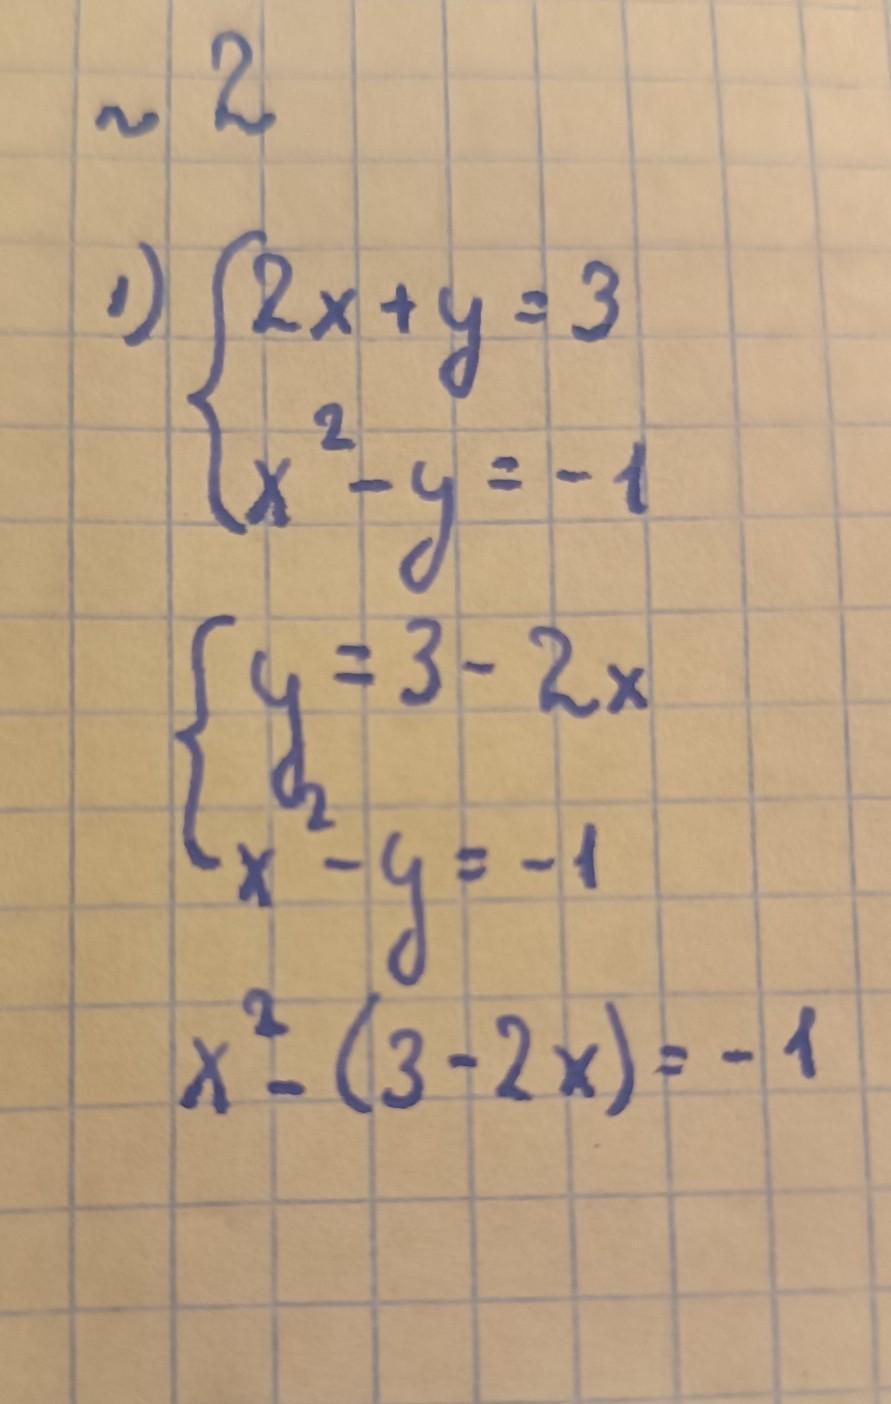 ~ 2
1) { 2x + y = 3
x² - y = -1
{ y = 3 - 2x
x² - y = -1
x² - (3 - 2x) = -1